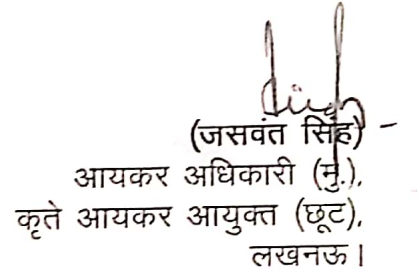 (जसवंत सिंह)
आयकर अधिकारी (मु.),
कृते आयकर आयुक्त (छूट),
लखनऊ।